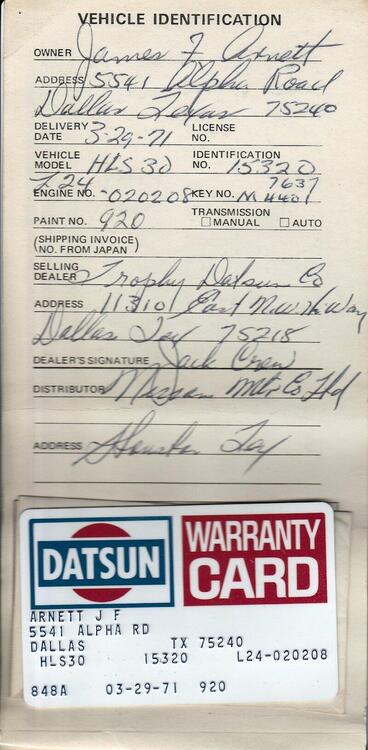 VEHICLE IDENTIFICATION
OWNER James F Arnett
ADDRESS 5541 Alpha Road
Dallas Texas 75240
DELIVERY DATE 3-29-71 LICENSE NO.
VEHICLE MODEL HLS30 IDENTIFICATION NO. 15320
L24 7637
ENGINE NO. -020208 KEY NO. M 4401
PAINT NO. 920 TRANSMISSION MANUAL AUTO
(SHIPPING INVOICE)
(NO. FROM JAPAN)
SELLING DEALER Trophy Datsun Co
ADDRESS 11310 East
Dallas Tex 75218
DEALER'S SIGNATURE Jack Crew
DISTRIBUTOR Nissan Mtr Co Ltd
ADDRESS Houston Tex
DATSUN
WARRANTY
CARD
ARNETT J F
5541 ALPHA RD
DALLAS TX 75240
HLS30 15320 L24-020208
848A 03-29-71 920